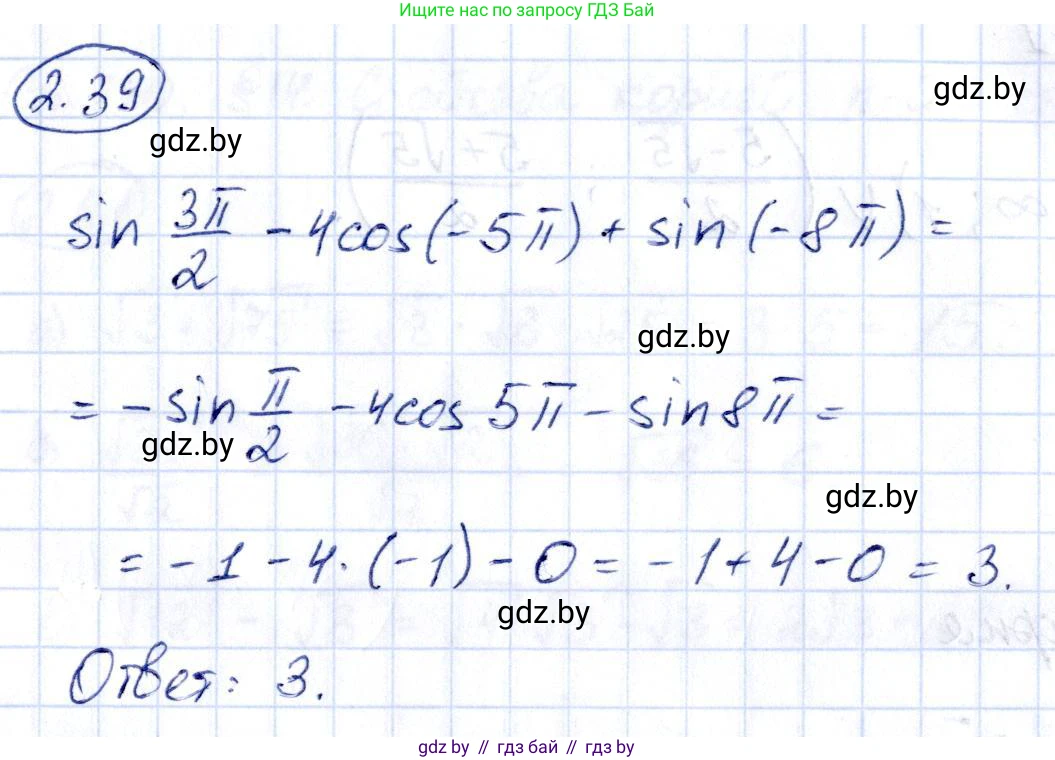 Ищите нас по запросу ГДЗ Бай
2.39
gdz.by
gdz.by
sin 3π/2 - 4cos(-5π) + sin(-8π) =
gdz.by
= - sin π/2 - 4cos 5π - sin 8π =
gdz.by
gdz.by
= - 1 - 4·(-1) - 0 = - 1 + 4 - 0 = 3.
gdz.by
Ответ: 3.
gdz by // гдз бай // гдз by